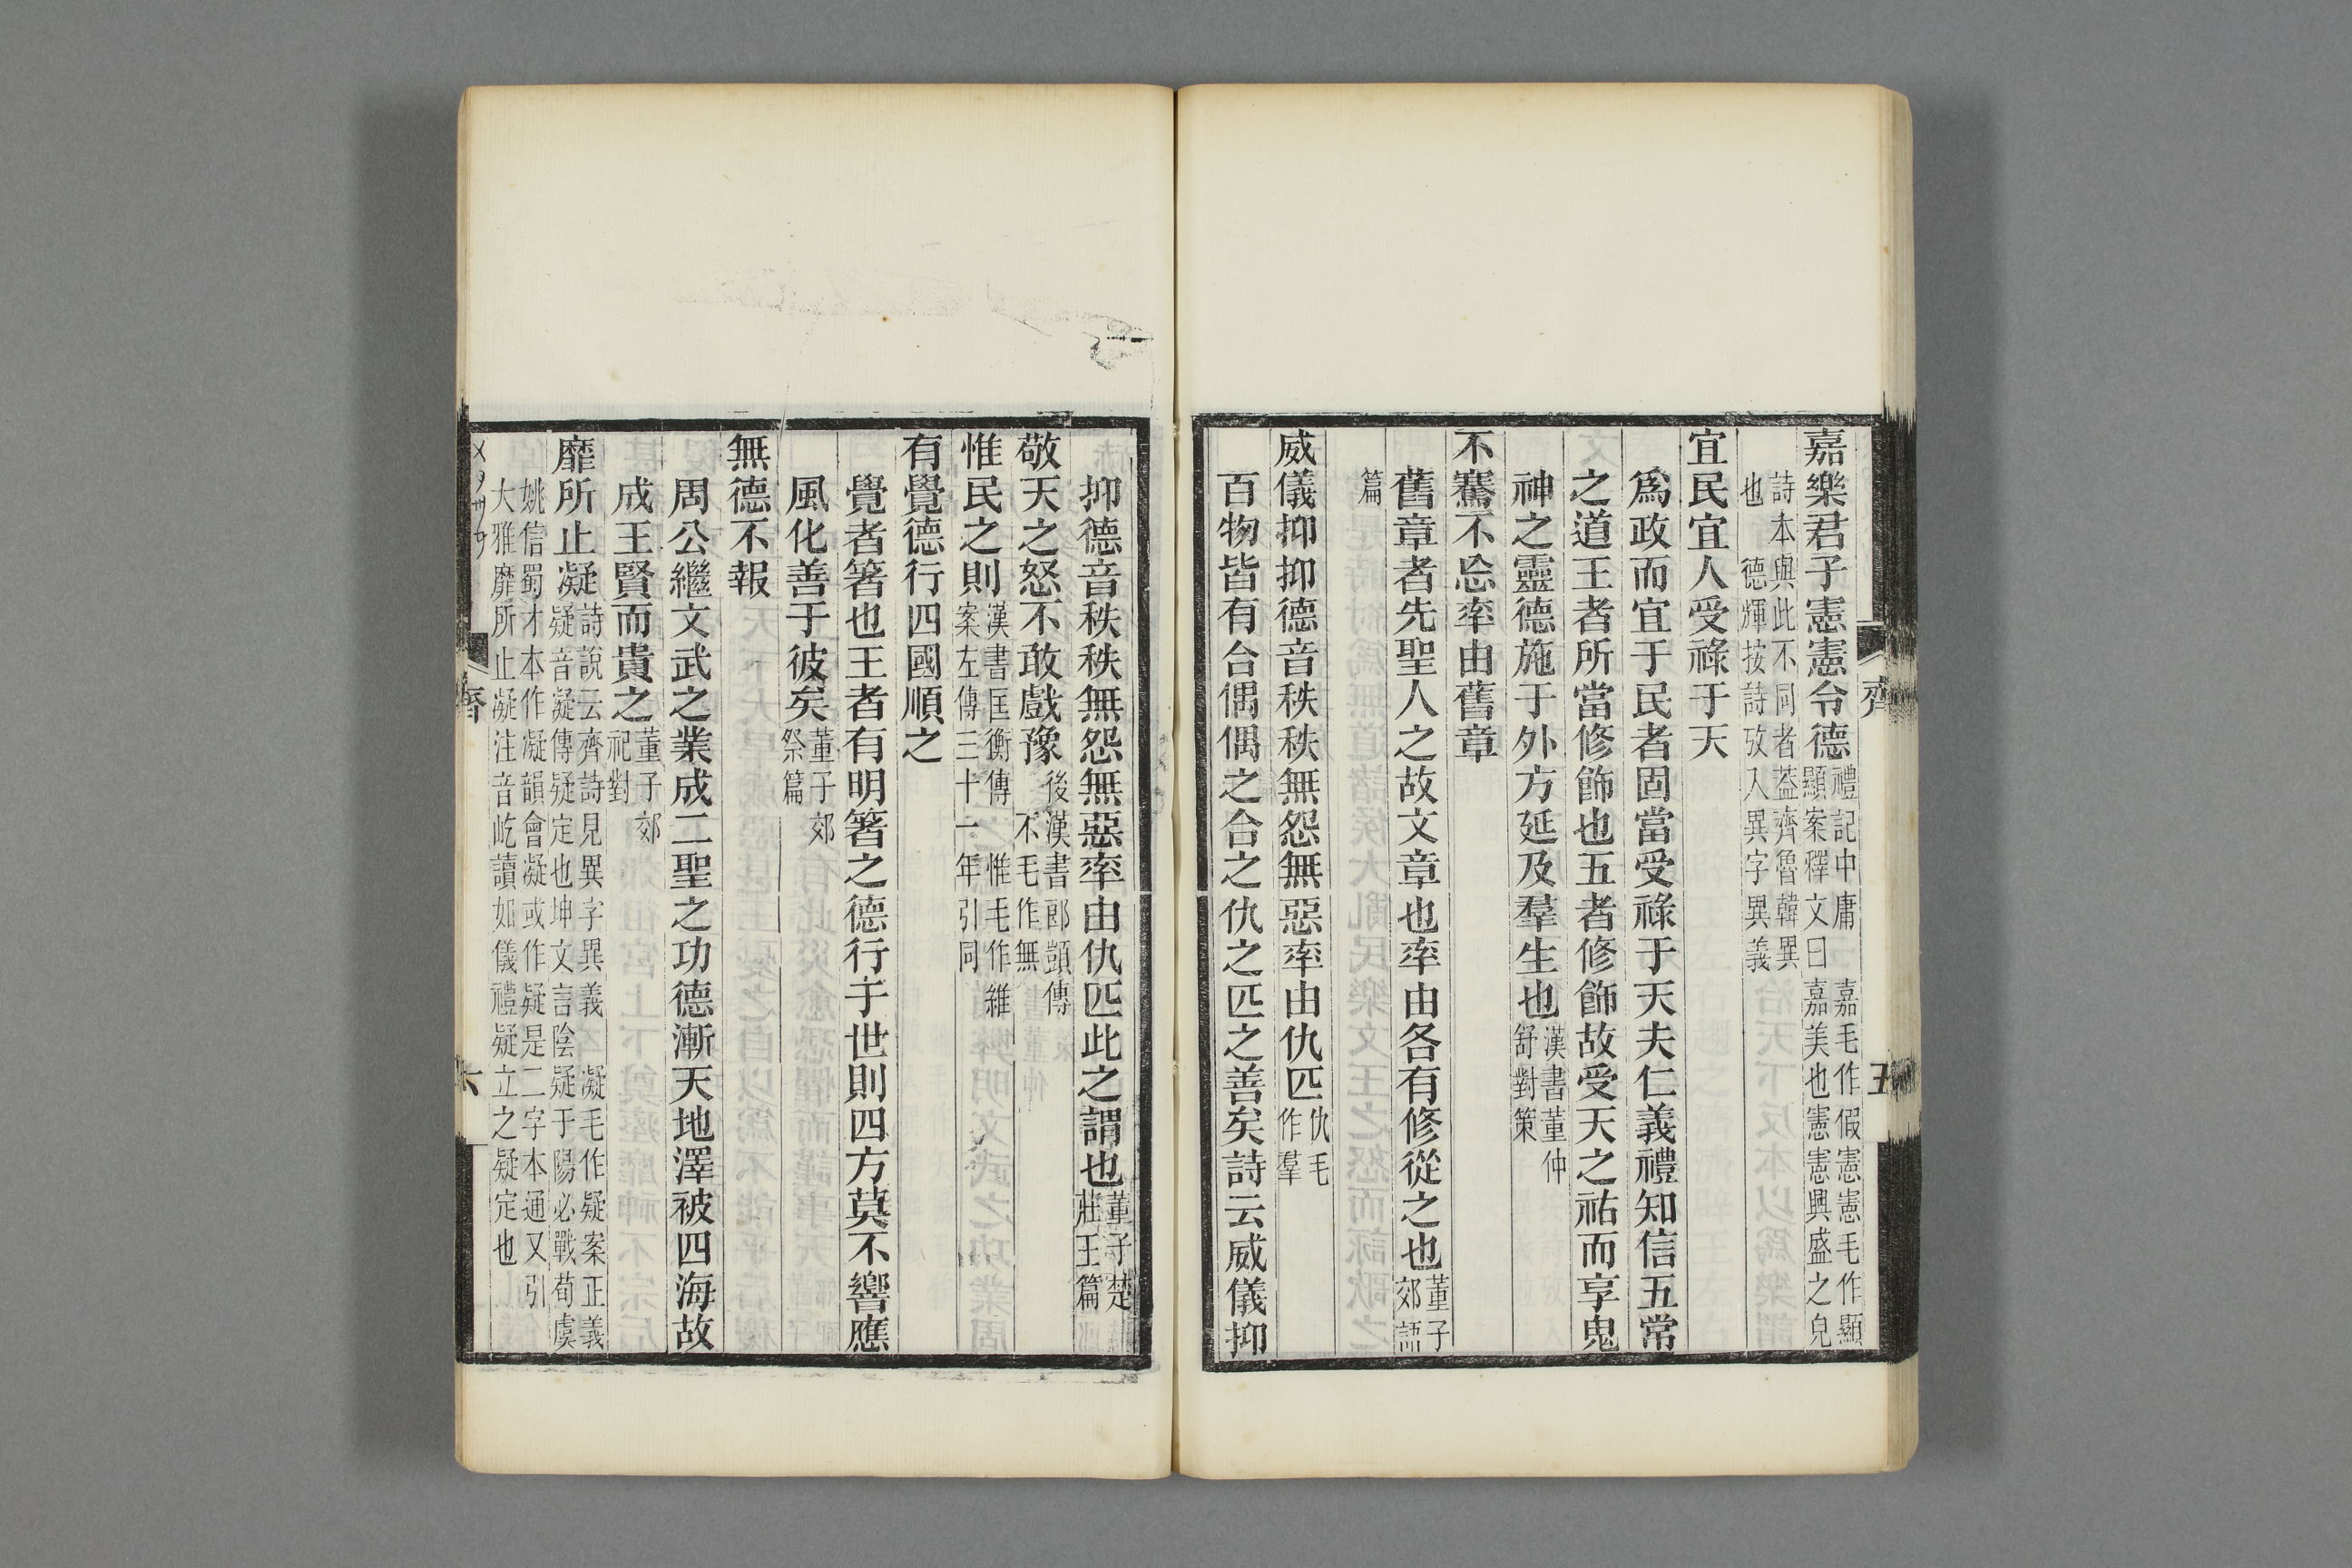 嘉樂君子憲憲令德禮記中庸 嘉毛作假憲憲毛作顯
顯案釋文曰 嘉美也憲憲興盛之皃
詩本與此不同者葢齊魯韓異
也 德輝按詩攷入異字異義
宜民宜人受祿于天
爲政而宜于民者固當受祿于天夫仁義禮知信五常
之道王者所當修飾也五者修飾故受天之祐而享鬼
神之靈德施于外方延及羣生也漢書董仲
舒對策
不騫不忘率由舊章
舊章者先聖人之故文章也率由各有修從之也董子
郊語
篇
威儀抑抑德音秩秩無怨無惡率由仇匹仇毛
作羣
百物皆有合偶偶之合之仇之匹之善矣詩云威儀抑
齊
五
抑德音秩秩無怨無惡率由仇匹此之謂也董子楚
莊王篇
敬天之怒不敢戲豫後漢書郎顗傳
不毛作無
惟民之則漢書匡衡傳 惟毛作維
案左傳三十一年引同
有覺德行四國順之
覺者箸也王者有明箸之德行于世則四方莫不響應
風化善于彼矣董子郊
祭篇
無德不報
周公繼文武之業成二聖之功德漸天地澤被四海故
成王賢而貴之董子郊
祀對
靡所止凝詩說云齊詩見異字異義 凝毛作疑案正義
疑音凝傳疑定也坤文言陰疑于陽必戰荀虞
姚信蜀才本作凝韻會凝或作疑是二字本通又引
大雅靡所止凝注音屹讀如儀禮疑立之疑定也
齊
六